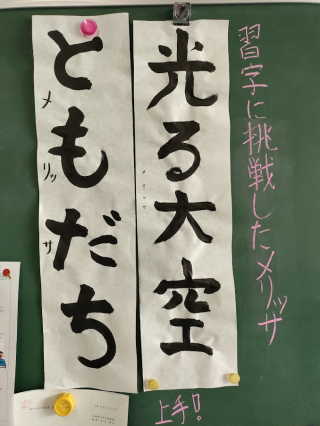 習字に挑戦したメリッサ
光る大空
メリッサ
ともだち
メリッサ
上手!